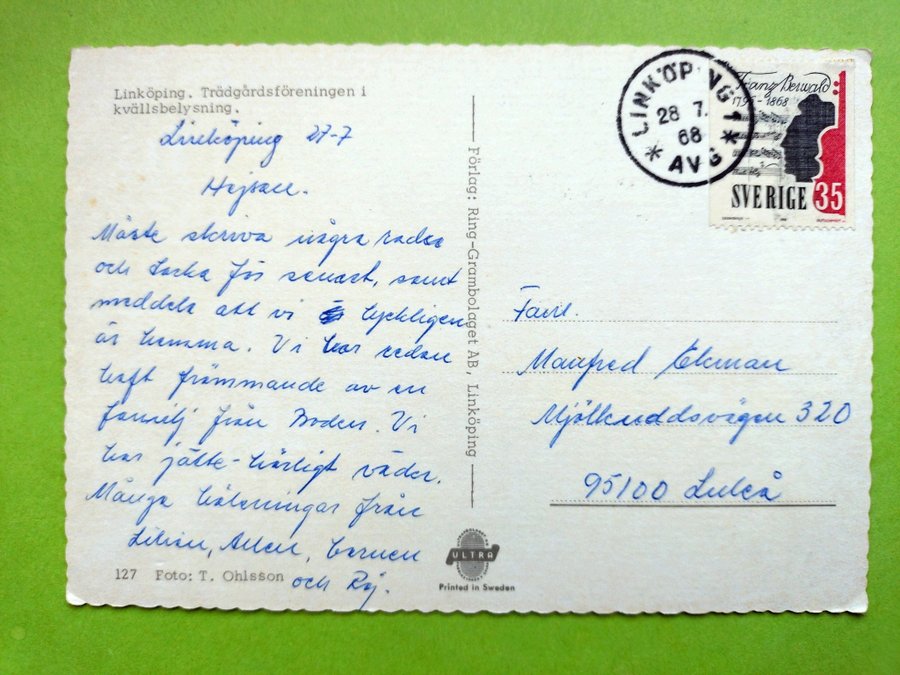 Linköping. Trädgårdsföreningen i
kvällsbelysning.
Linköping 27-7
Hejsan.
Måste skriva några rader
och tacka för senast, samt
meddela att vi lyckligen
är hemma. Vi har redan
haft främmande av en
familj från Boden. Vi
har jätte-härligt väder.
Många hälsningar från
Lilian, Allan, barnen
och Roj.
127 Foto: T. Ohlsson
Förlag: Ring-Grambolaget AB, Linköping
ULTRA
Printed in Sweden
LINKÖPING 1
28 7.
68
AVG
Franz Berwald
1796-1868
SVERIGE 35
Fam.
Manfred Ekman
Mjölkuddsvägen 320
95100 Luleå